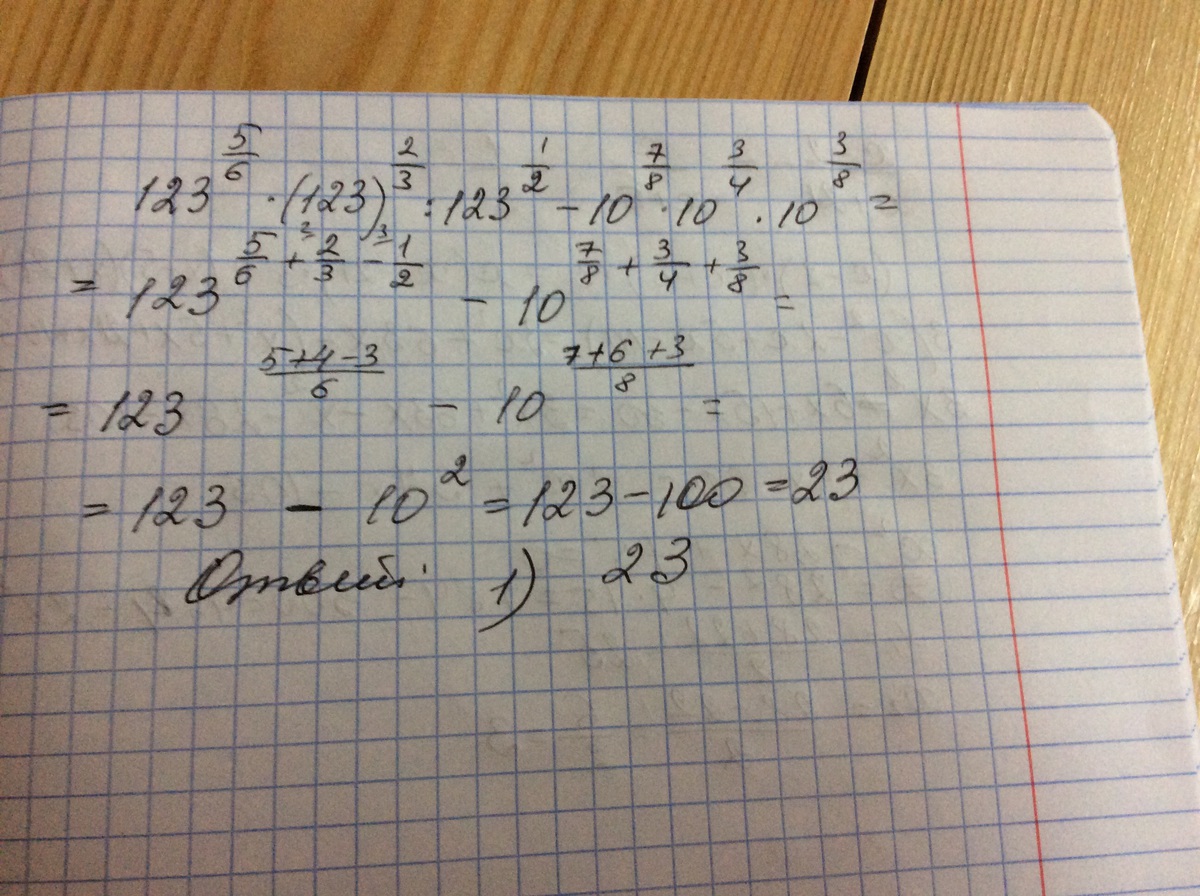 123^(5/6) · (123)^(2/3) : 123^(1/2) − 10^(7/8) · 10^(3/4) · 10^(3/8) =
= 123^(5/6 + ²2/3 − ³1/2) − 10^(7/8 + 3/4 + 3/8) =
= 123^((5+4−3)/6) − 10^((7+6+3)/8) =
= 123 − 10² = 123 − 100 = 23
Ответ: 1) 23